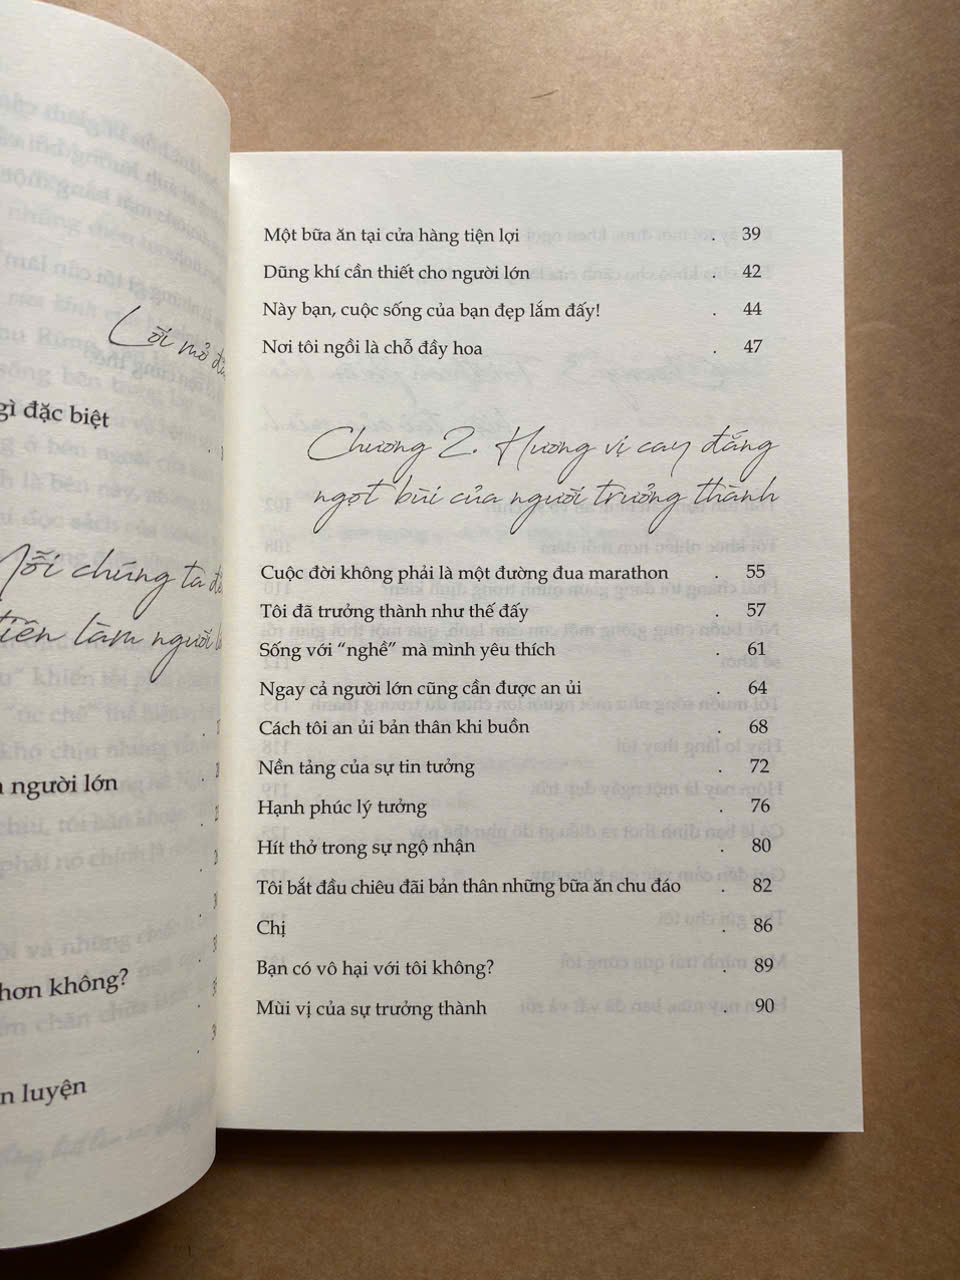 Lời mở
gì đặc biệt
Mỗi chúng ta
tiên làm người
người lớn
hơn không?
luyện
Một bữa ăn tại cửa hàng tiện lợi . 39
Dũng khí cần thiết cho người lớn . 42
Này bạn, cuộc sống của bạn đẹp lắm đấy! . 44
Nơi tôi ngồi là chỗ đầy hoa . 47
Chương 2. Hương vị cay đắng
ngọt bùi của người trưởng thành
Cuộc đời không phải là một đường đua marathon . 55
Tôi đã trưởng thành như thế đấy . 57
Sống với “nghề” mà mình yêu thích . 61
Ngay cả người lớn cũng cần được an ủi . 64
Cách tôi an ủi bản thân khi buồn . 68
Nền tảng của sự tin tưởng . 72
Hạnh phúc lý tưởng . 76
Hít thở trong sự ngộ nhận . 80
Tôi bắt đầu chiêu đãi bản thân những bữa ăn chu đáo . 82
Chị . 86
Bạn có vô hại với tôi không? . 89
Mùi vị của sự trưởng thành . 90